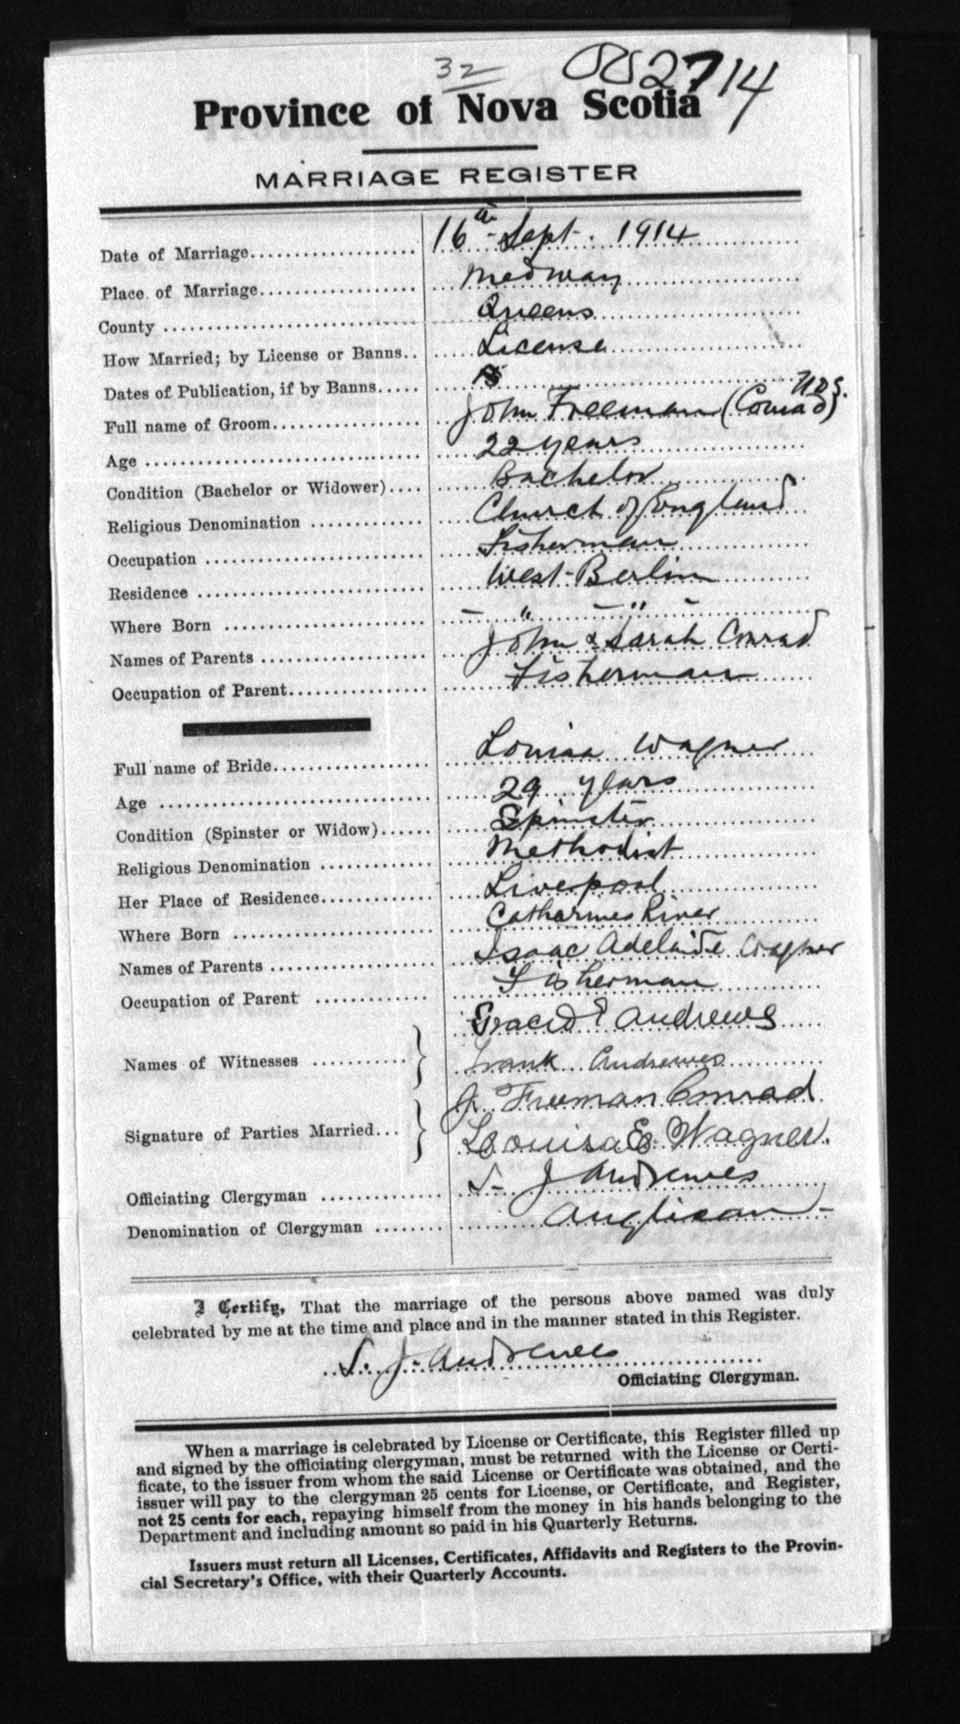 32
2714
Province of Nova Scotia
MARRIAGE REGISTER
Date of Marriage 16th Sept. 1914
Place of Marriage Medway
County Queens
How Married; by License or Banns License
Dates of Publication, if by Banns
Full name of Groom John Freeman (Conrad)
Age 22 years
Condition (Bachelor or Widower) Bachelor
Religious Denomination Church of England
Occupation Fisherman
Residence West Berlin
Where Born — " — " —
Names of Parents John & Sarah Conrad
Occupation of Parent Fisherman
Full name of Bride Louisa Wagner
Age 29 years
Condition (Spinster or Widow) Spinster
Religious Denomination Methodist
Her Place of Residence Liverpool
Where Born Catharines River
Names of Parents Isaac Adelaide Wagner
Occupation of Parent Fisherman
Names of Witnesses E Andrewes
Frank Andrewes
Signature of Parties Married J. Freeman Conrad
Louisa E. Wagner.
Officiating Clergyman S. J Andrewes
Denomination of Clergyman Anglican
I Certify, That the marriage of the persons above named was duly
celebrated by me at the time and place and in the manner stated in this Register.
S. J. Andrewes
Officiating Clergyman.
When a marriage is celebrated by License or Certificate, this Register filled up
and signed by the officiating clergyman, must be returned with the License or Certi-
ficate, to the issuer from whom the said License or Certificate was obtained, and the
issuer will pay to the clergyman 25 cents for License, or Certificate, and Register,
not 25 cents for each, repaying himself from the money in his hands belonging to the
Department and including amount so paid in his Quarterly Returns.
Issuers must return all Licenses, Certificates, Affidavits and Registers to the Provin-
cial Secretary's Office, with their Quarterly Accounts.